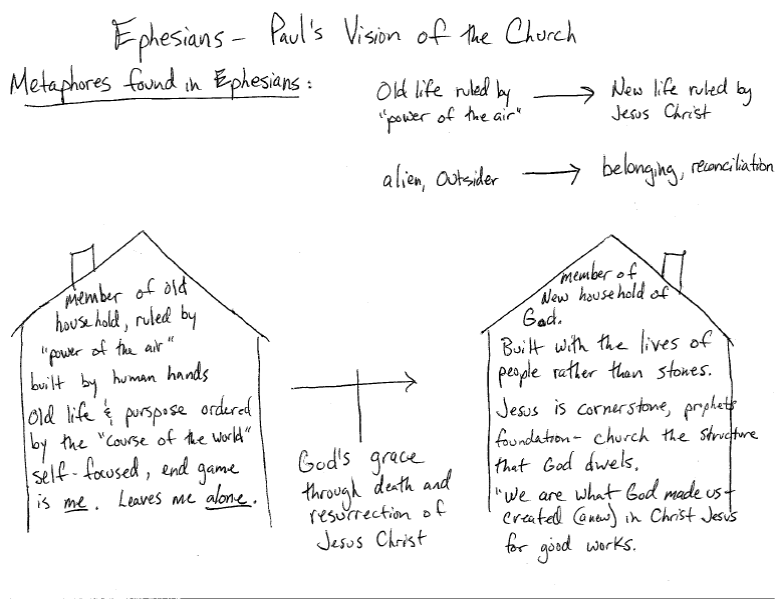 Ephesians – Paul's Vision of the Church
Metaphores found in Ephesians:
Old life ruled by
"power of the air"
New life ruled by
Jesus Christ
alien, outsider
belonging, reconciliation
member of old
household, ruled by
"power of the air"
built by human hands
Old life & purspose ordered
by the "course of the world"
self-focused, end game
is me. Leaves me alone.
God's grace
through death and
resurrection of
Jesus Christ
member of
New household of
God.
Built with the lives of
people rather than stones.
Jesus is cornerstone, prophets
foundation – church the structure
that God dwels.
"We are what God made us –
created (anew) in Christ Jesus
for good works.